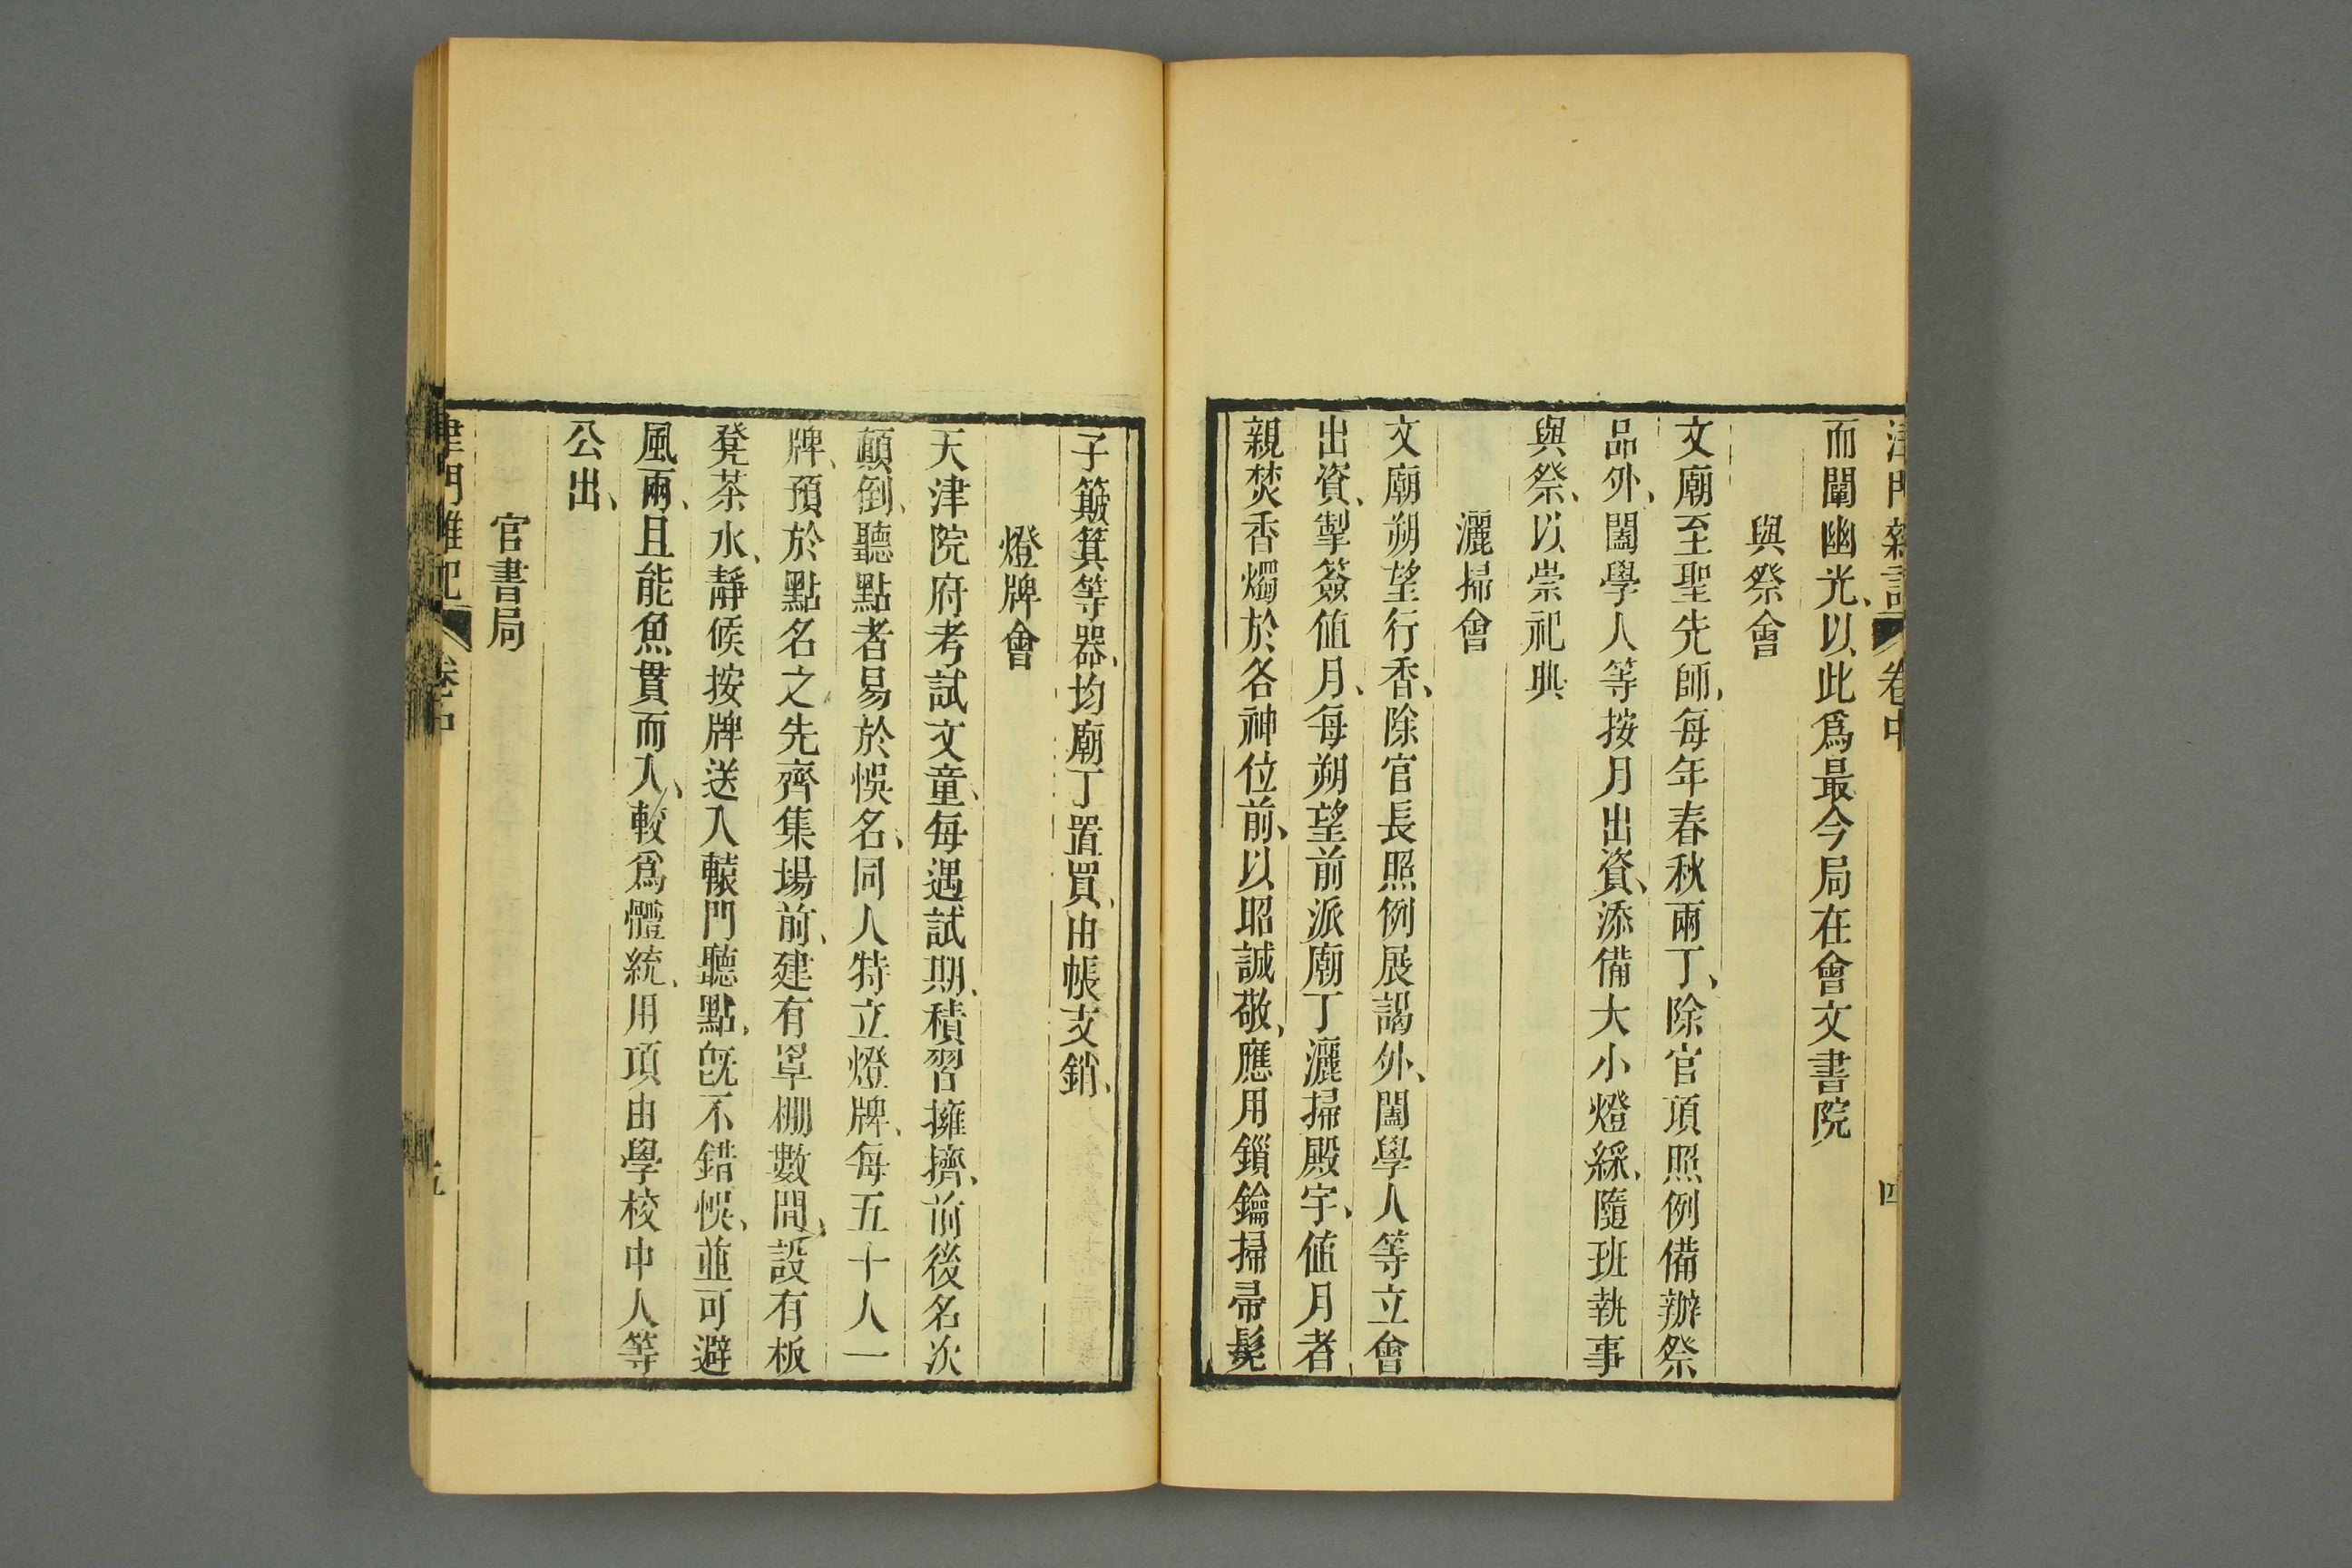 津門雜記 卷中 四
而闡幽光、以此爲最今局在會文書院
與祭會
文廟至聖先師、每年春秋兩丁、除官項照例備辦祭
品外、闔學人等按月出資、添備大小燈綵、隨班執事
與祭、以崇祀典
灑掃會
文廟朔望行香、除官長照例展謁外、闔學人等立會
出資、掣簽值月、每朔望前派廟丁灑掃殿宇、值月者
親焚香燭於各神位前、以昭誠敬、應用鎖鑰掃帚髮
子簸箕等器、均廟丁置買、由帳支銷、
燈牌會
天津院府考試文童、每遇試期、積習擁擠、前後名次
顛倒、聽點者易於悞名、同人特立燈牌、每五十人一
牌、預於點名之先齊集場前、建有罩棚數間、設有板
凳茶水、靜候按牌送入轅門聽點、旣不錯悞、並可避
風雨、且能魚貫而入、較爲體統、用項由學校中人等
公出、
官書局
津門雜記 卷中 五